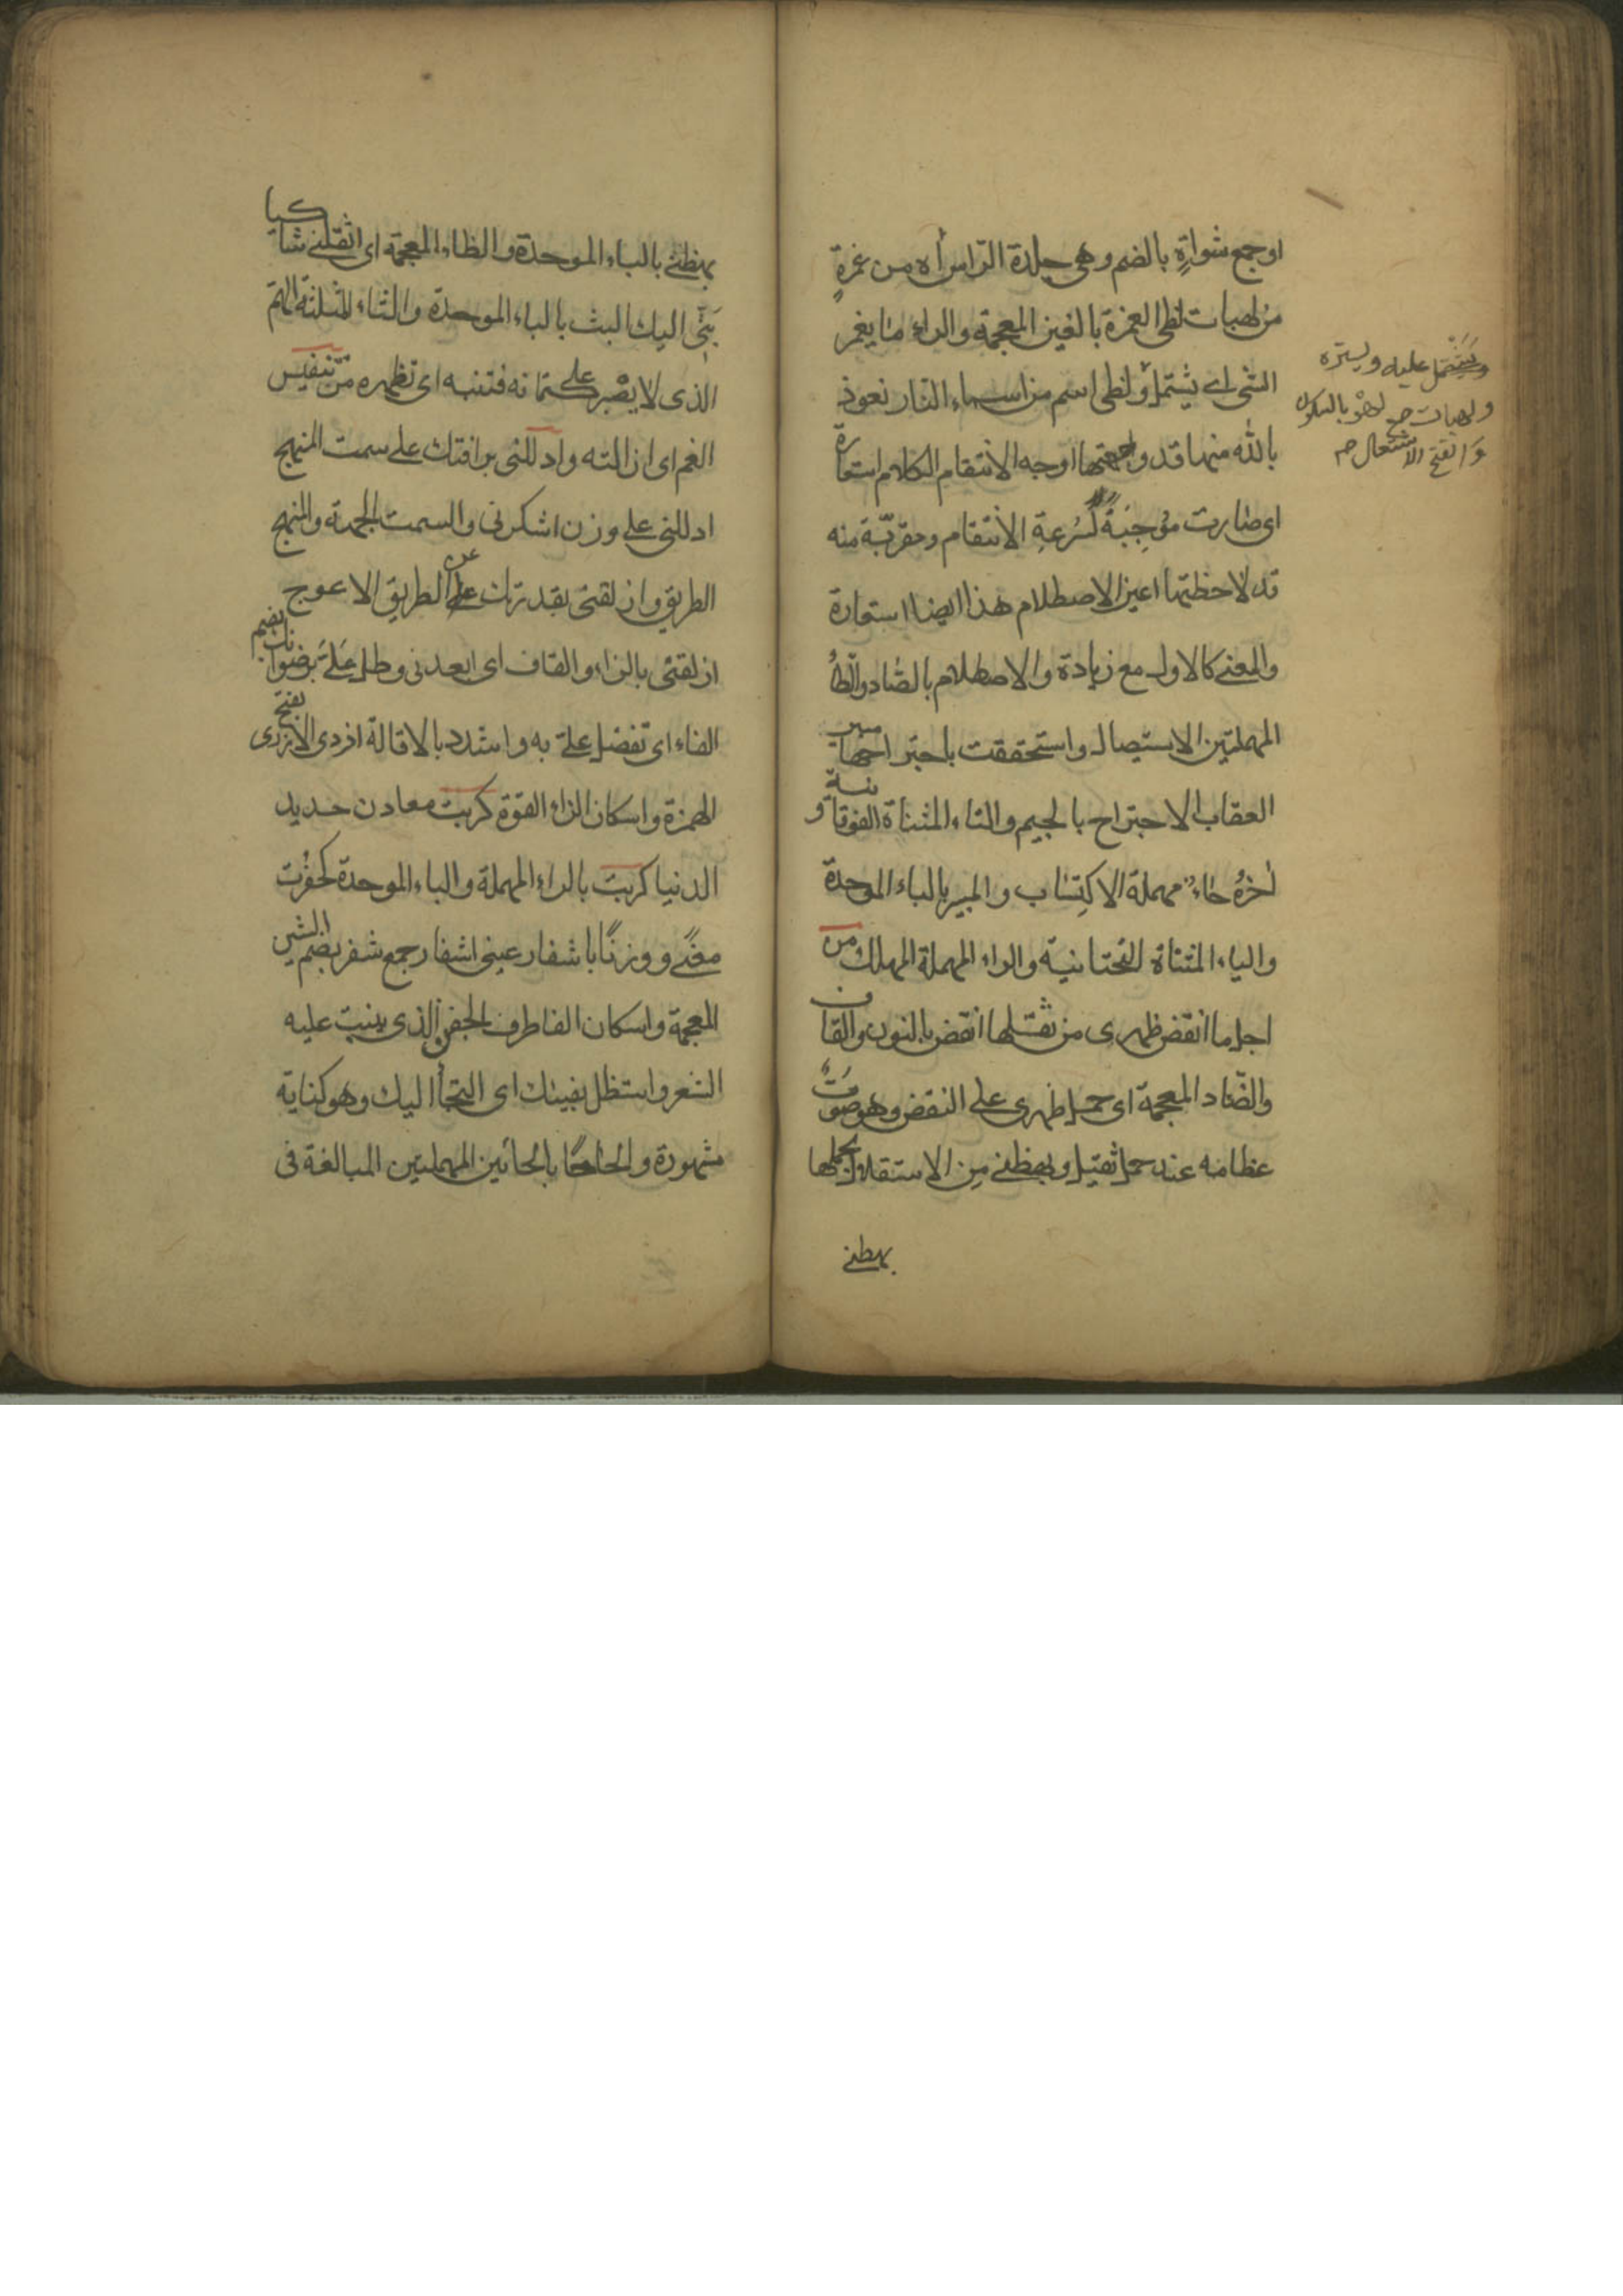 او جمع شواةٍ بالضم وهى جلدة الراس أه من غمرةٍ
من لهبات لظى الغمرة بالغين المعجمة والراء ما يغمر
الشى اے يشتمل ولظى اسم من اسماء النار نعوذ
بالله منها قد واجهتها اوجه الانتقام الكلام استعارة
اى صارت مؤجِبَةً لسُرعةِ الانتقام ومقربّة منه
قد لاحظتها اعين الاصطلام هذا ايضا استعارة
والمعنے كالاول مع زيادة والاصطلام بالصاد والطاء
المهملتين الاستيصال واستحققت باجتراحها مبير
العقاب الاجتراح بالجيم والتاء المثناة الفوقانية و
اٰخرُهُ حاء مهملة الاكتِساب والمبير بالباء الموحدة
والياء المثناة التحتانية والراء المهملة المهلك من
اجل ما انقض ظهرى من ثقلها انقض بالنون والقاف
والضّاد المعجمة اى حمل ظهرى على النقض وهو صَوتُ
عظامه عند حمل ثقيل وبهظنے مِن الاستقلال بحملها
بهظنے
ويَشتمل عليه ويستره
ولهبات جمع لهب بالسكون
والفتح الاشتعال صم
بهظنے بالباء الموحدة والظاء المعجمة اى اثقلنے شاكيا
بَثّى اليك البث بالباء الموحدة والثاء المثلثة الهمّ
الذى لا يصْبر على كتمانه فتنبه اى تظهره من تنفيس
الغم اى ازالته وادللنى برافتك على سمت المنهج
ادللنى على وزن اشكرنى والسمت الجهة والمنهج
الطريق وازلقنى بقدرتك على عن الطريق الاعوج
ازلقنى بالزاء والقاف اى ابعدنى وطل عَلَىَّ برضوانك بضم
الفاء اى تفضل علىّ به واشدد بالاقالة ازرى الازر بفتح
الهمزة واسكان الزاء القوة كربت معادن حديد
الدنيا كربت بالراء المهملة والباء الموحدة كحفرت
معنًے ووزنًا باشفار عينى اشفار جمع شفر بضم الشين
المعجمة واسكان الفا طرف الجفن الذى ينبت عليه
الشعر واستظل بفيئك اى التجأ اليك وهو كناية
مشهورة والحاحًا بالحائين المهملتين المبالغة فى